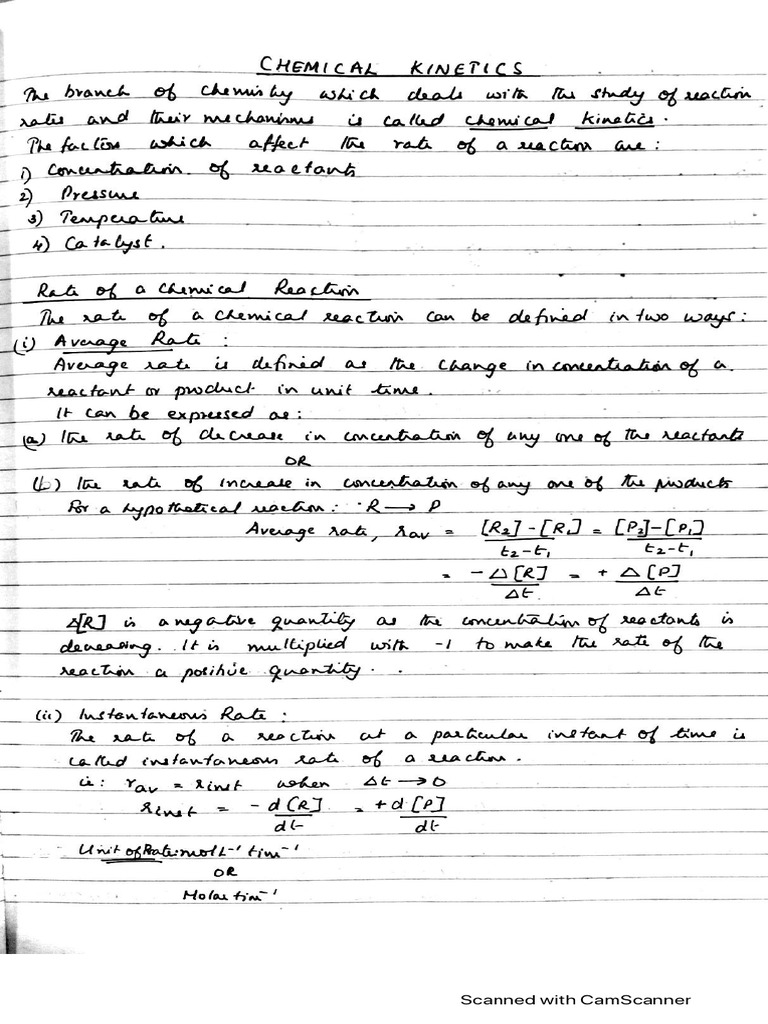 CHEMICAL KINETICS
The branch of chemistry which deals with the study of reaction
rates and their mechanisms is called chemical kinetics.
The factors which affect the rate of a reaction are:
1) Concentration of reactants
2) Pressure
3) Temperature
4) Catalyst.
Rate of a chemical Reaction
The rate of a chemical reaction can be defined in two ways:
(i) Average Rate :
Average rate is defined as the change in concentration of a
reactant or product in unit time.
It can be expressed as:
(a) the rate of decrease in concentration of any one of the reactants
OR
(b) the rate of increase in concentration of any one of the products
For a hypothetical reaction: R → P
Average rate, rav = [R2] - [R1] / t2-t1 = [P2] - [P1] / t2-t1
= - Δ[R] / Δt = + Δ[P] / Δt
Δ[R] is a negative quantity as the concentration of reactants is
decreasing. It is multiplied with -1 to make the rate of the
reaction a positive quantity.
(ii) Instantaneous Rate :
The rate of a reaction at a particular instant of time is
called instantaneous rate of a reaction.
ie: rav = rinst when Δt → 0
rinst = - d[R] / dt = + d[P] / dt
Unit of Rate: mol L⁻¹ tim⁻¹
OR
Molar tim⁻¹
Scanned with CamScanner